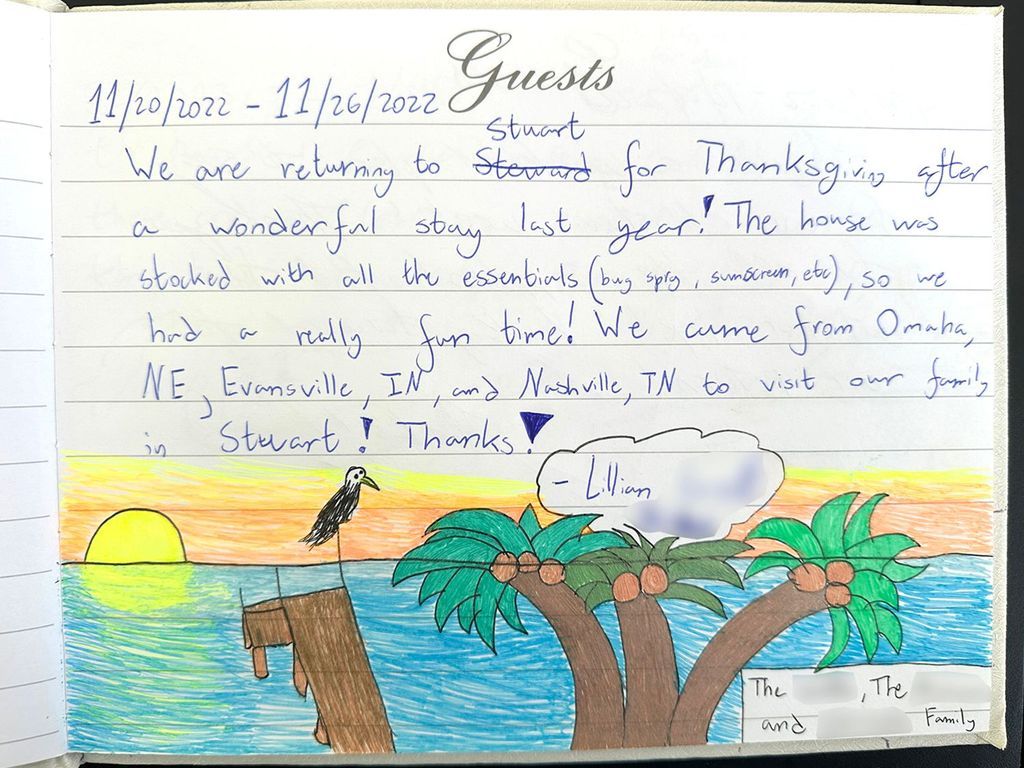 Guests
11/20/2022 - 11/26/2022
Stuart
We are returning to Steward for Thanksgiving after
a wonderful stay last year! The house was
stocked with all the essentials (bug spry, sunscreen, etc), so we
had a really fun time! We came from Omaha,
NE, Evansville, IN, and Nashville, TN to visit our family
in Stuart! Thanks!
- Lillian
The , The
and Family